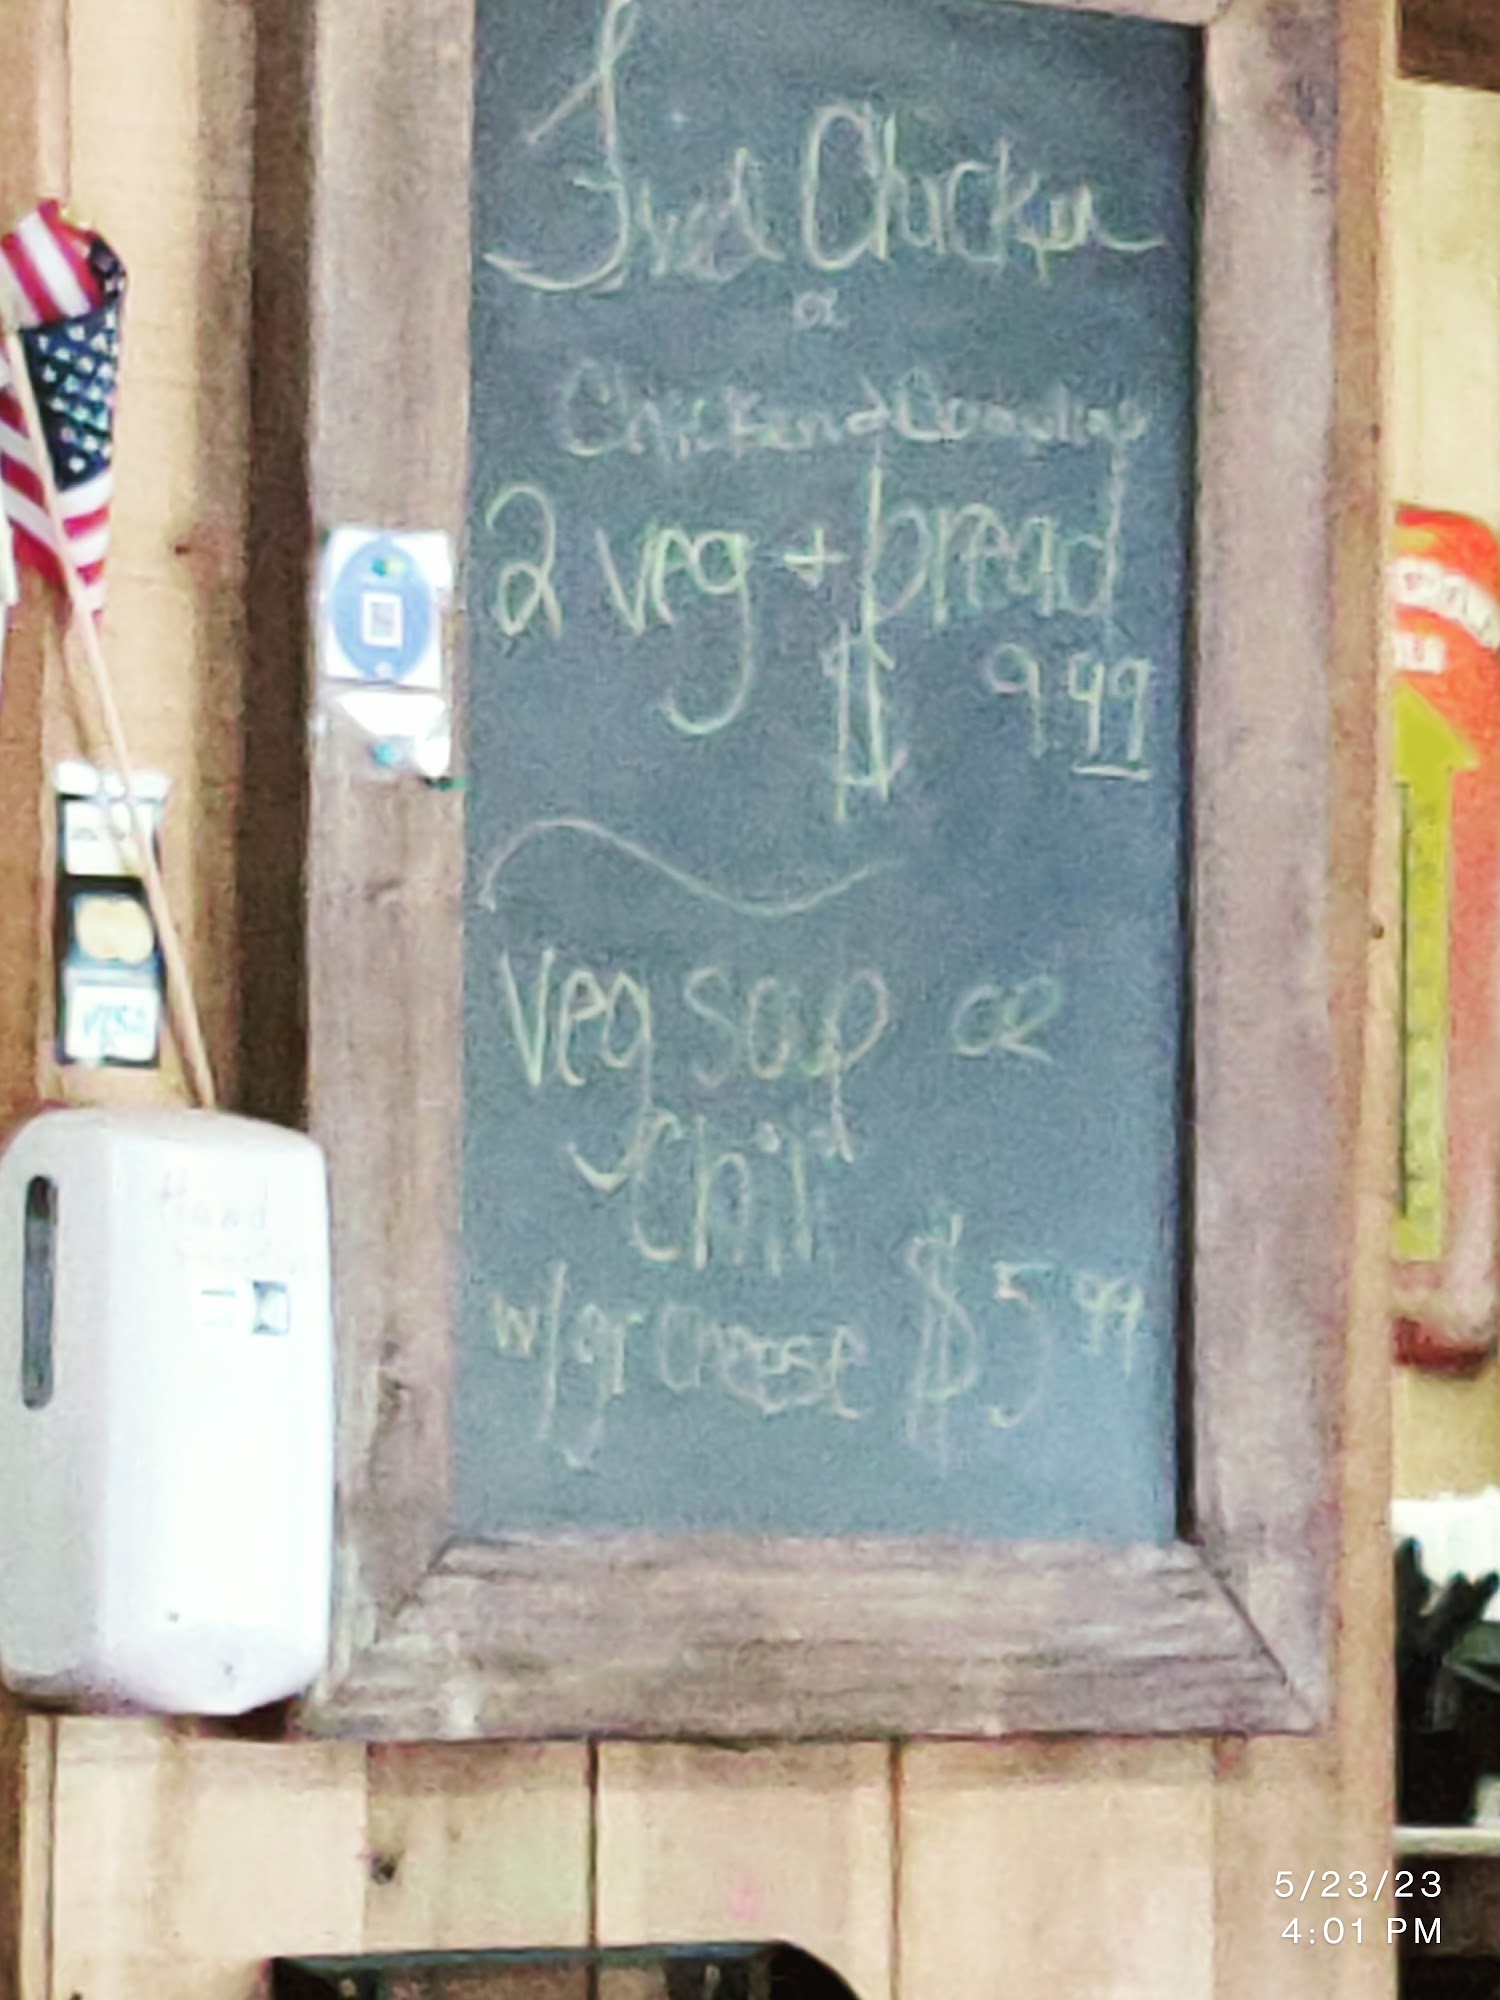 Fried Chicken
or
Chicken & Dumplings
2 veg + bread
$ 9.49
Veg soup OR
Chili
w/gr cheese $5.99
VISA
Hand
5/23/23
4:01 PM